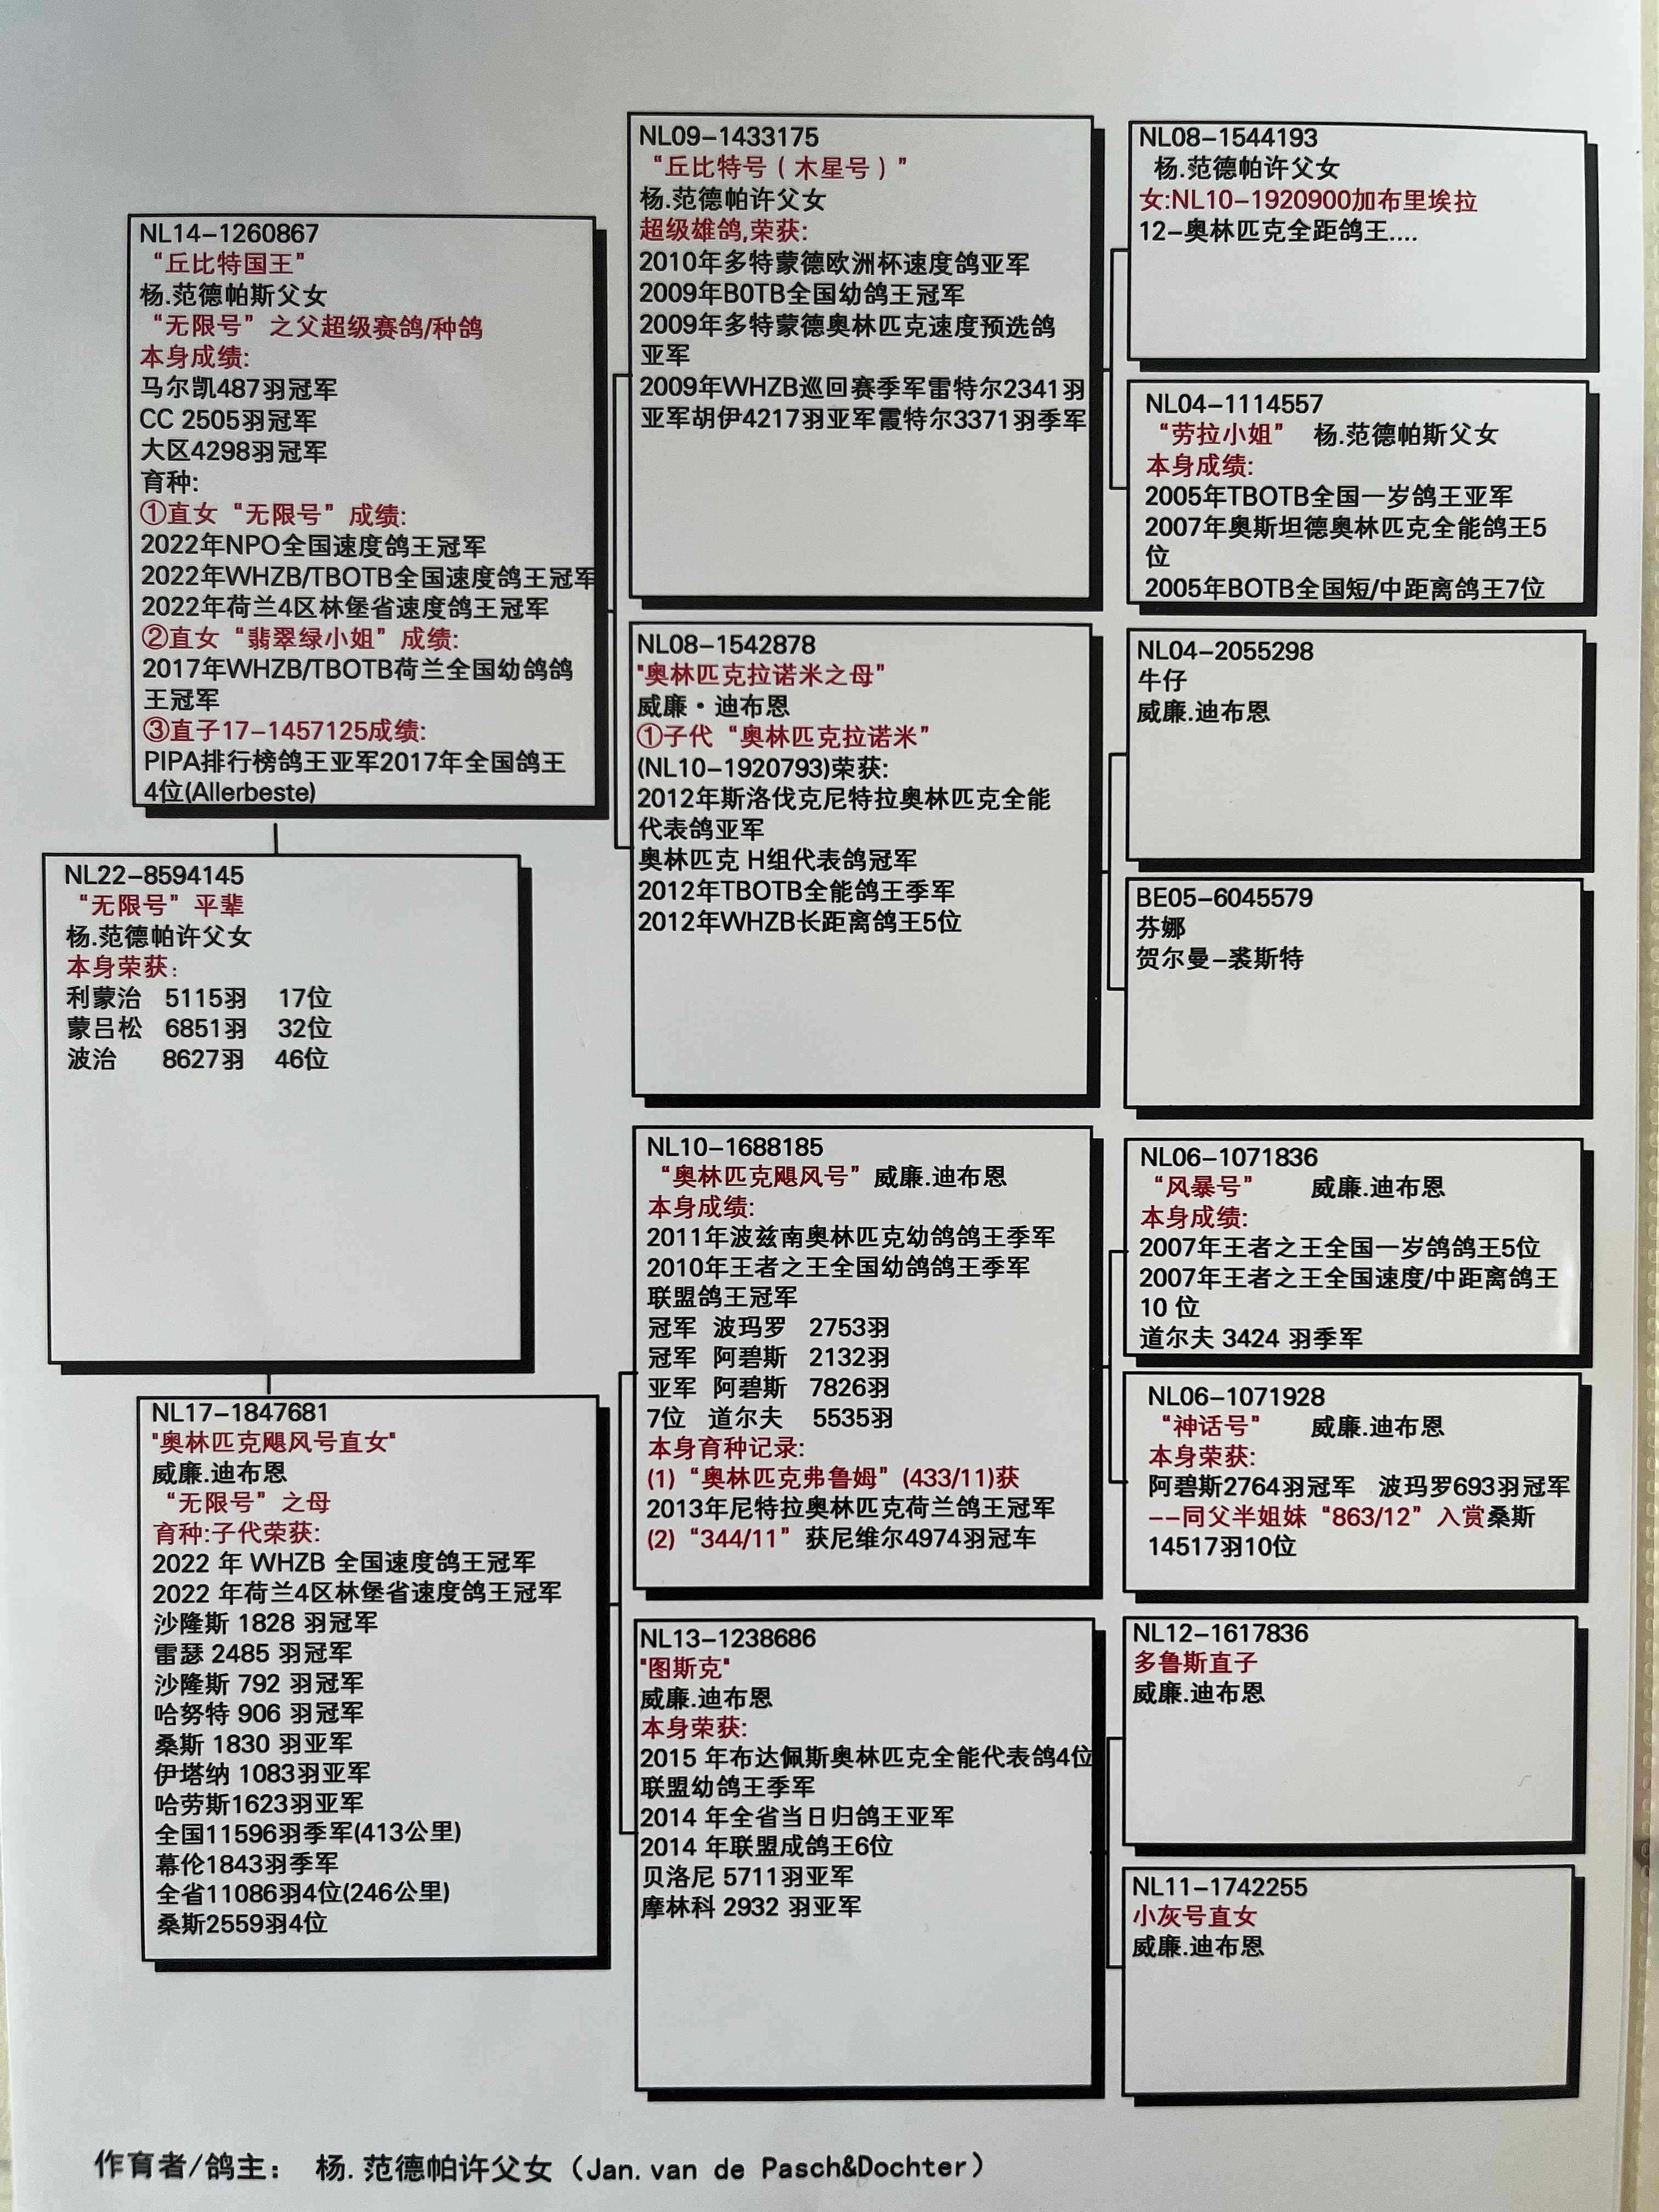 NL14-1260867
“丘比特国王”
杨.范德帕斯父女
“无限号” 之父超级赛鸽/种鸽
本身成绩:
马尔凯487羽冠军
CC 2505羽冠军
大区4298羽冠军
育种:
①直女“无限号”成绩:
2022年NPO全国速度鸽王冠军
2022年WHZB/TBOTB全国速度鸽王冠军
2022年荷兰4区林堡省速度鸽王冠军
②直女“翡翠绿小姐”成绩:
2017年WHZB/TBOTB荷兰全国幼鸽鸽
王冠军
③直子17-1457125成绩:
PIPA排行榜鸽王亚军2017年全国鸽王
4位(Allerbeste)
NL22-8594145
“无限号”平辈
杨.范德帕许父女
本身荣获:
利蒙治 5115羽 17位
蒙吕松 6851羽 32位
波治 8627羽 46位
NL17-1847681
"奥林匹克飓风号直女"
威廉.迪布恩
“无限号”之母
育种:子代荣获:
2022 年 WHZB 全国速度鸽王冠军
2022 年荷兰4区林堡省速度鸽王冠军
沙隆斯 1828 羽冠军
雷瑟 2485 羽冠军
沙隆斯 792 羽冠军
哈努特 906 羽冠军
桑斯 1830 羽亚军
伊塔纳 1083羽亚军
哈劳斯1623羽亚军
全国11596羽季军(413公里)
幕伦1843羽季军
全省11086羽4位(246公里)
桑斯2559羽4位
NL09-1433175
“丘比特号（木星号）”
杨.范德帕许父女
超级雄鸽,荣获:
2010年多特蒙德欧洲杯速度鸽亚军
2009年B0TB全国幼鸽王冠军
2009年多特蒙德奥林匹克速度预选鸽
亚军
2009年WHZB巡回赛季军雷特尔2341羽
亚军胡伊4217羽亚军霞特尔3371羽季军
NL08-1542878
"奥林匹克拉诺米之母"
威廉·迪布恩
①子代“奥林匹克拉诺米”
(NL10-1920793)荣获:
2012年斯洛伐克尼特拉奥林匹克全能
代表鸽亚军
奥林匹克 H组代表鸽冠军
2012年TBOTB全能鸽王季军
2012年WHZB长距离鸽王5位
NL10-1688185
“奥林匹克飓风号” 威廉.迪布恩
本身成绩:
2011年波兹南奥林匹克幼鸽鸽王季军
2010年王者之王全国幼鸽鸽王季军
联盟鸽王冠军
冠军 波玛罗 2753羽
冠军 阿碧斯 2132羽
亚军 阿碧斯 7826羽
7位 道尔夫 5535羽
本身育种记录:
(1)“奥林匹克弗鲁姆”(433/11)获
2013年尼特拉奥林匹克荷兰鸽王冠军
(2)“344/11” 获尼维尔4974羽冠车
NL13-1238686
"图斯克"
威廉.迪布恩
本身荣获:
2015 年布达佩斯奥林匹克全能代表鸽4位
联盟幼鸽王季军
2014 年全省当日归鸽王亚军
2014 年联盟成鸽王6位
贝洛尼 5711羽亚军
摩林科 2932 羽亚军
NL08-1544193
杨.范德帕许父女
女:NL10-1920900加布里埃拉
12-奥林匹克全距鸽王....
NL04-1114557
“劳拉小姐” 杨.范德帕斯父女
本身成绩:
2005年TBOTB全国一岁鸽王亚军
2007年奥斯坦德奥林匹克全能鸽王5
位
2005年BOTB全国短/中距离鸽王7位
NL04-2055298
牛仔
威廉.迪布恩
BE05-6045579
芬娜
贺尔曼-裘斯特
NL06-1071836
“风暴号” 威廉.迪布恩
本身成绩:
2007年王者之王全国一岁鸽鸽王5位
2007年王者之王全国速度/中距离鸽王
10 位
道尔夫 3424 羽季军
NL06-1071928
“神话号” 威廉.迪布恩
本身荣获:
阿碧斯2764羽冠军 波玛罗693羽冠军
--同父半姐妹“863/12”入赏桑斯
14517羽10位
NL12-1617836
多鲁斯直子
威廉.迪布恩
NL11-1742255
小灰号直女
威廉.迪布恩
作育者/鸽主： 杨.范德帕许父女（Jan.van de Pasch&Dochter）